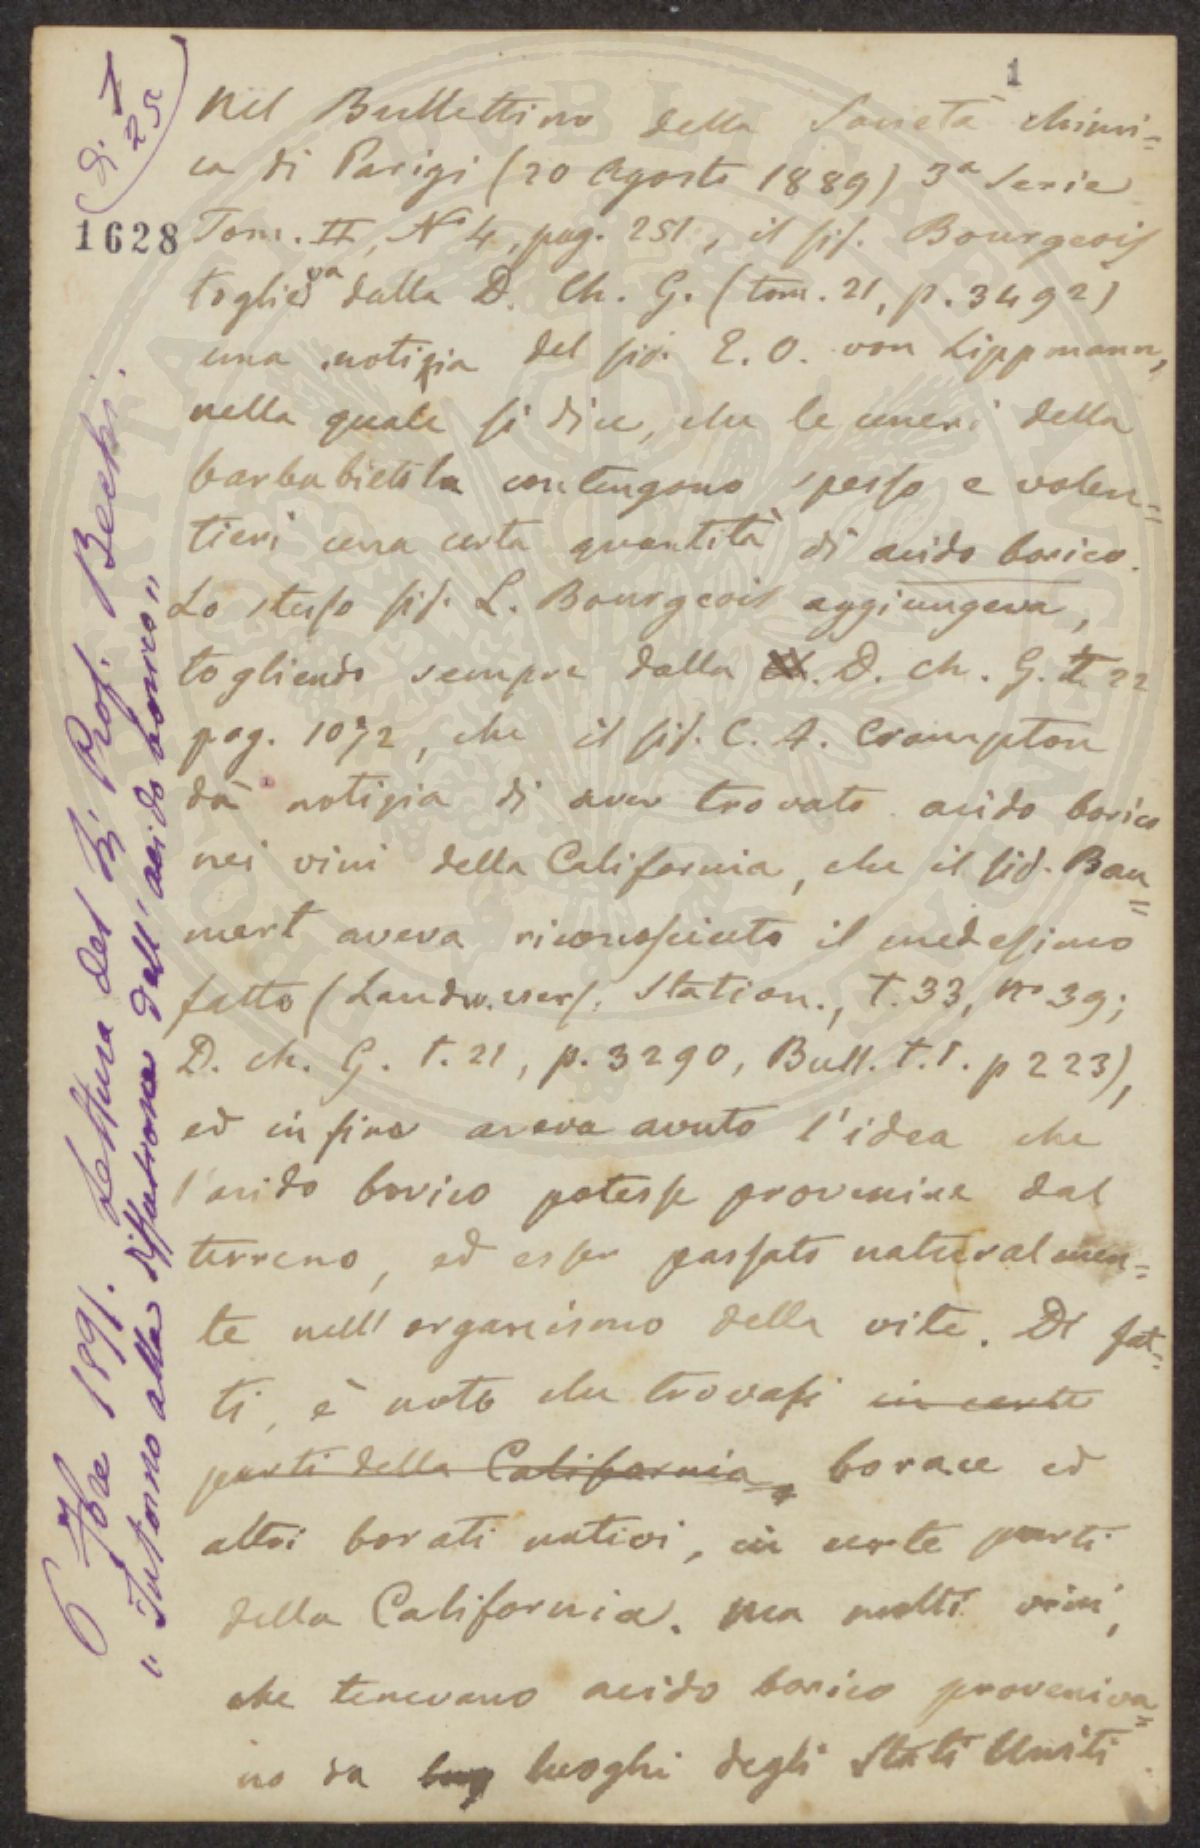 1
(di 1
25)
1628
6 Xbre 1891. Lettura del Sig. Prof. Bechi.
"Intorno alla diffusione dell'acido borico"
Nel Bullettino della Società chimi=
ca di Parigi (20 Agosto 1889) 3ª Serie
Tom. II, Nº 4, pag. 251, il sig. Bourgeois
toglieva dalla D. Ch. G. (tom. 21, p. 3492)
una notizia del sig. E. O. von Lippmann,
nella quale si dice, che le ceneri della
barbabietola contengono spesso e volen=
tieri una certa quantità di acido borico.
Lo stesso sig. L. Bourgeois aggiungeva,
togliendo sempre dalla D. ch. G. t. 22
pag. 1072, che il sig. C. A. Crampton
dà notizia di aver trovato acido borico
nei vini della California, che il sig. Bau=
mert aveva riconosciuto il medesimo
fatto (Landw. vers. Station., T. 33, nº 39;
D. ch. G. t. 21, p. 3290, Bull. t. I. p 223),
ed infine aveva avuto l'idea che
l'acido borico potesse provenire dal
terreno, ed esser passato naturalmen=
te nell'organismo della vite. Di fat=
ti, è noto che trovasi in certe
parti della California, borace ed
altri borati nativi, in certe parti
della California. Ma molti vini,
che tenevano acido borico proveniva=
no da luoghi degli Stati Uniti